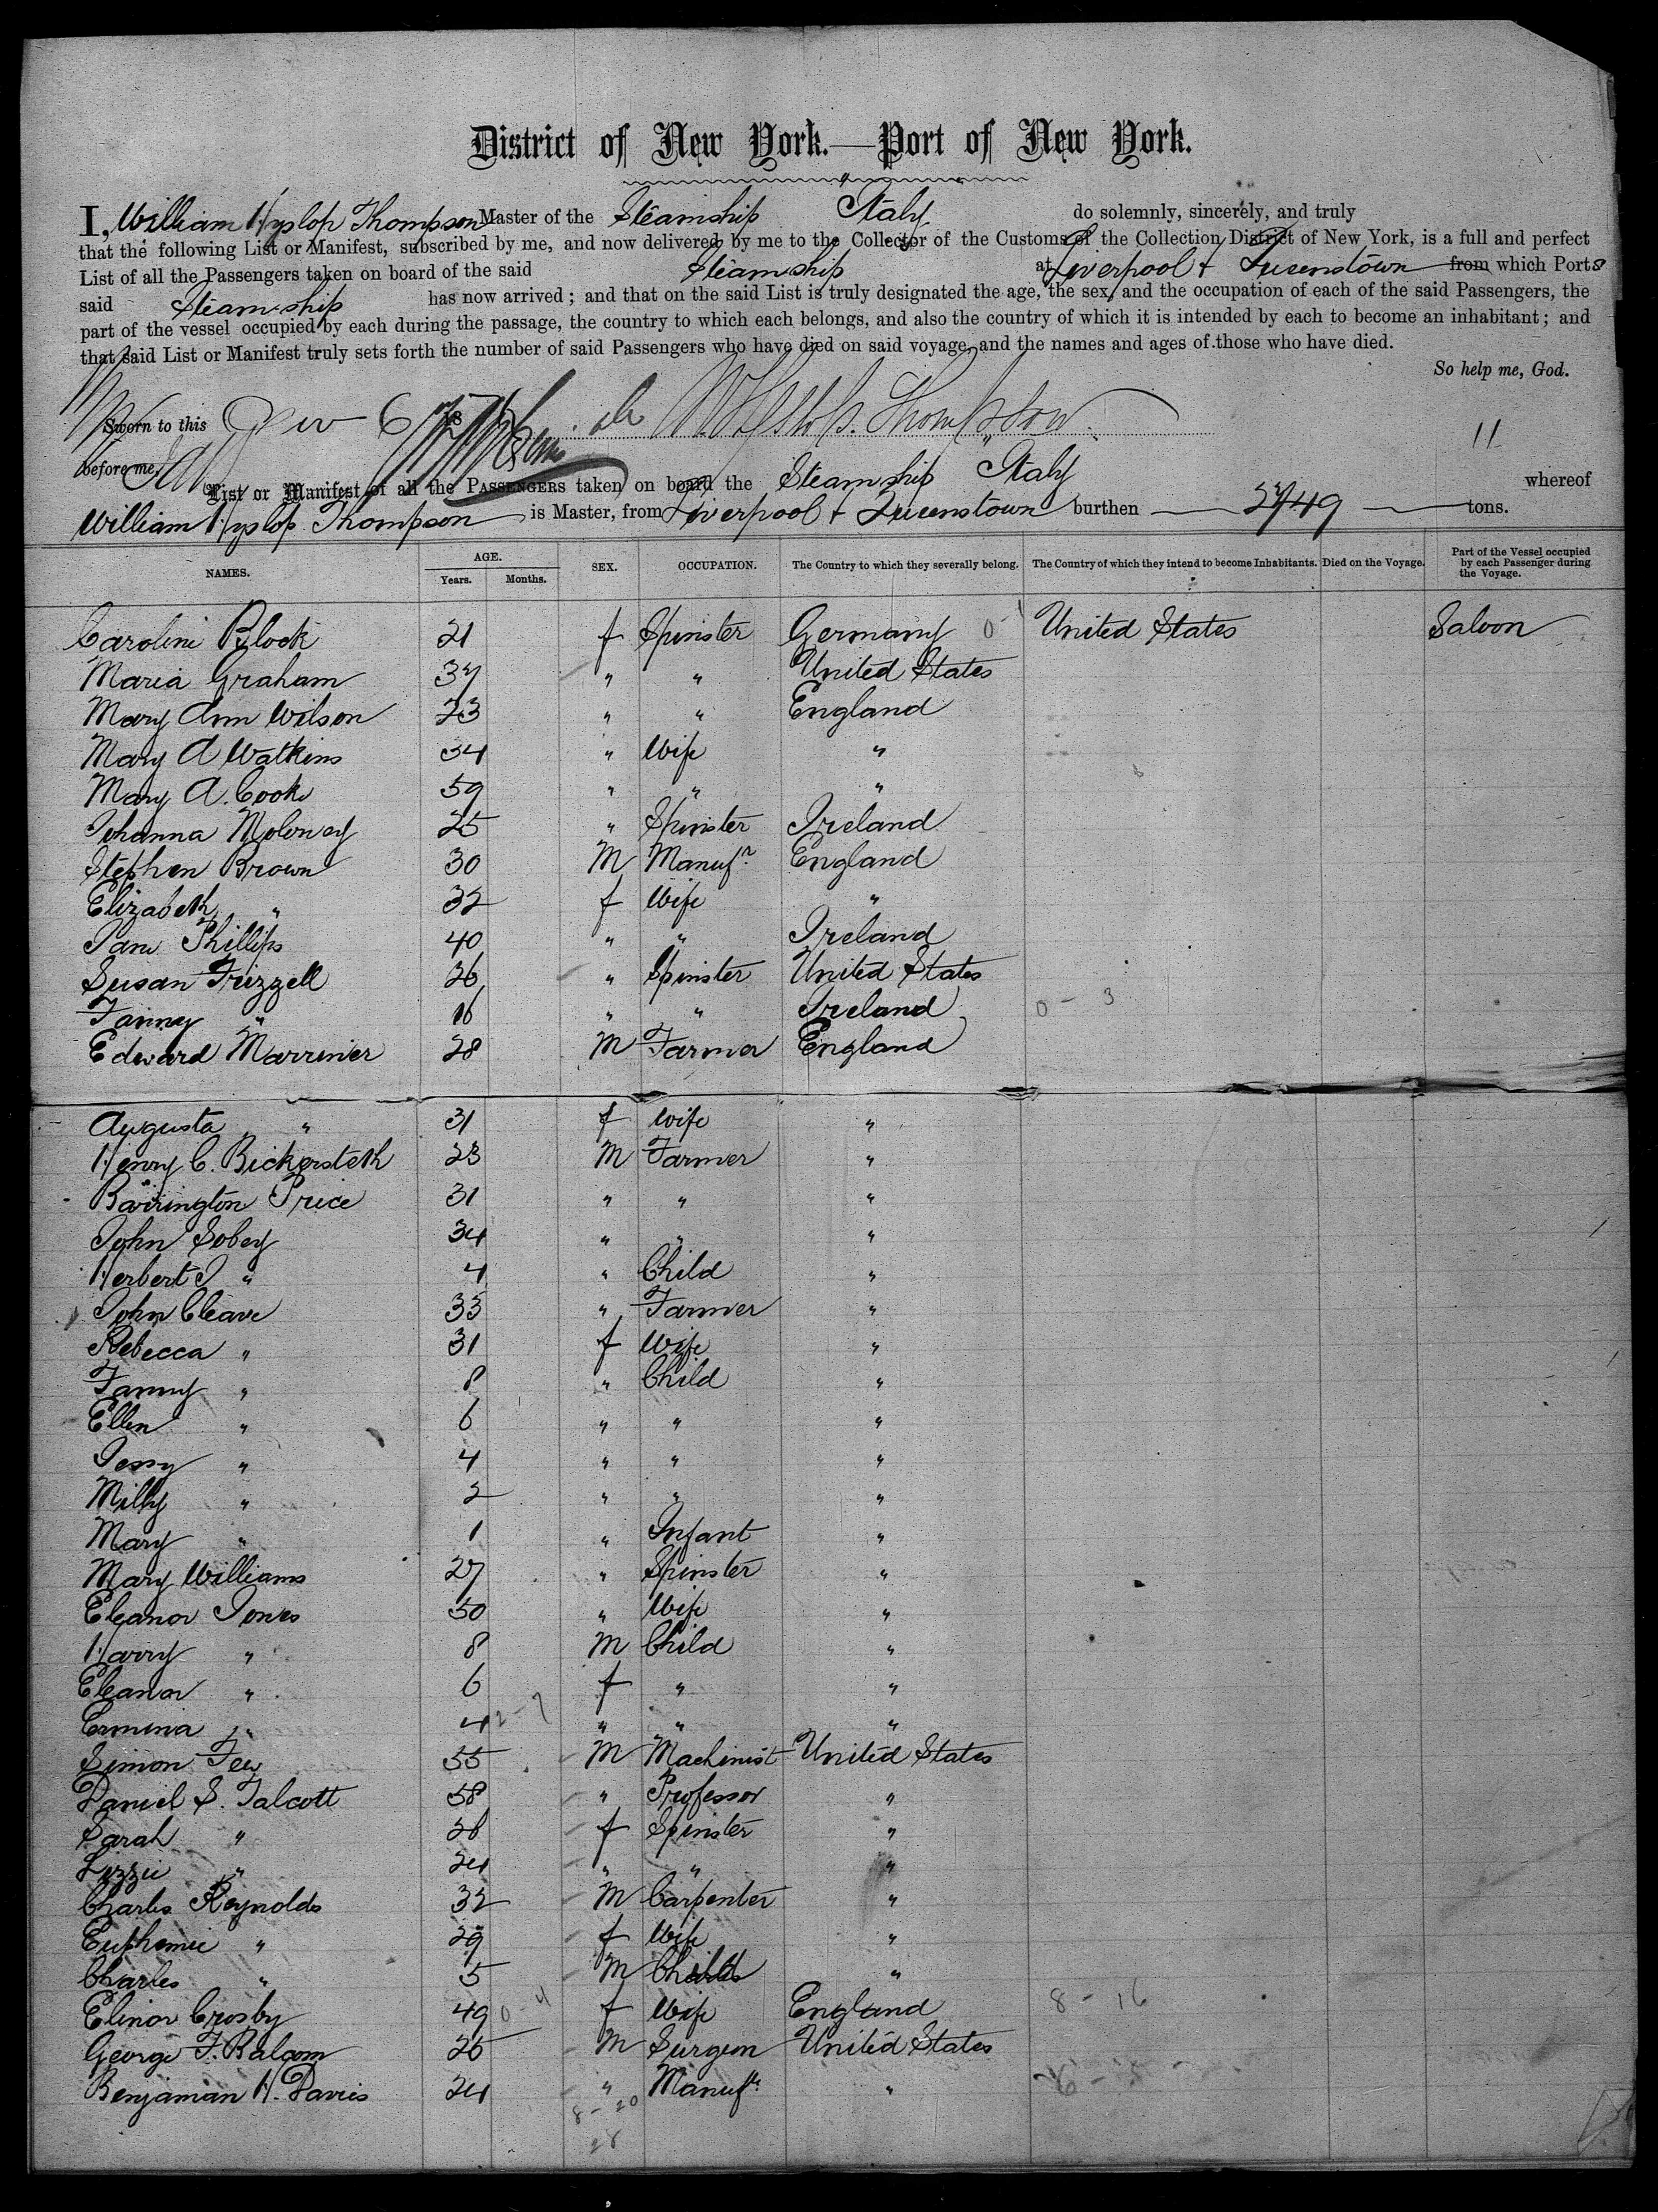 District of New York.—Port of New York.
I, William Hyslop Thompson Master of the Steamship "Italy do solemnly, sincerely, and truly
that the following List or Manifest, subscribed by me, and now delivered by me to the Collector of the Customs of the Collection District of New York, is a full and perfect
List of all the Passengers taken on board of the said Steamship at Liverpool & Queenstown from which Ports
said Steamship has now arrived; and that on the said List is truly designated the age, the sex, and the occupation of each of the said Passengers, the
part of the vessel occupied by each during the passage, the country to which each belongs, and also the country of which it is intended by each to become an inhabitant; and
that said List or Manifest truly sets forth the number of said Passengers who have died on said voyage, and the names and ages of those who have died.
So help me, God.
Sworn to this 6 18 W. Hyslop. Thompson
before me, 11
List or Manifest of all the Passengers taken on board the Steamship "Italy whereof
William Hyslop Thompson is Master, from Liverpool & Queenstown burthen 2749 tons.
NAMES. AGE. Years. Months. SEX. OCCUPATION. The Country to which they severally belong. The Country of which they intend to become Inhabitants. Died on the Voyage. Part of the Vessel occupied by each Passenger during the Voyage.
Caroline Block 21 f Spinster Germany 0-1 United States Saloon
Maria Graham 37 " " United States
Mary Ann Wilson 23 " " England
Mary A Watkins 34 " Wife "
Mary A. Cook 59 " " "
Johanna Moloney 25 " Spinster Ireland
Stephen Brown 30 M Manufr. England
Elizabeth " 32 f Wife "
Jane Phillips 40 " " Ireland
Susan Frizzell 26 " Spinster United States
Fanny " 16 " " Ireland 0-3
Edward Marriner 28 M Farmer England
Augusta " 31 f Wife "
Henry C. Bickersteth 23 M Farmer "
Barrington Price 31 " " "
John Sobey 34 " " "
Herbert J " 4 " Child "
John Cleave 33 " Farmer "
Rebecca " 31 f Wife "
Fanny " 8 " Child "
Ellen " 6 " " "
Jessy " 4 " " "
Milly " 2 " " "
Mary " 1 " Infant "
Mary Williams 27 " Spinster "
Eleanor Jones 50 " Wife "
Harry " 8 M Child "
Eleanor " 6 f " "
Erminia " 4 2-7 " " "
Simon Few 55 M Machinist United States
Daniel S. Talcott 58 " Professor "
Sarah " 26 f Spinster "
Lizzie " 24 " " "
Charles Reynolds 32 M Carpenter "
Euphemie " 29 f Wife "
Charles " 5 M Child "
Elinor Crosby 49 0-4 f Wife England 8-16
George F. Balcom 26 M Surgeon United States
Benjaman H. Davis 24 " Manufr. "
8-20
28